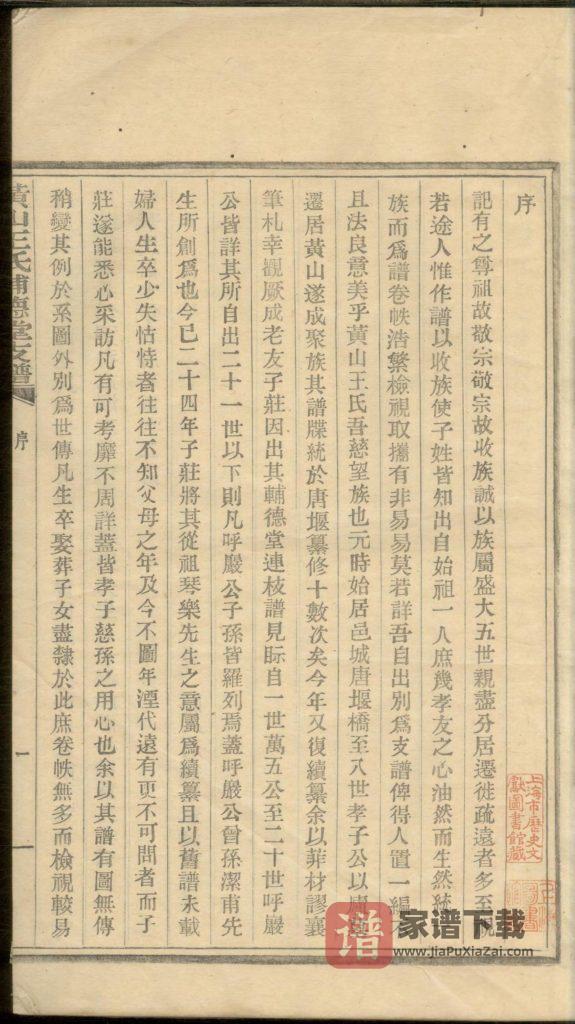 序
記有之尊祖故敬宗敬宗故收族誠以族屬盛大五世親盡分居遷徙疏遠者多至視
若途人惟作譜以收族使子姓皆知出自始祖一人庶幾孝友之心油然而生然統
族而爲譜卷帙浩繁檢視取攜有非易易莫若詳吾自出別爲支譜俾得人置一編
且法良意美乎黃山王氏吾慈望族也元時始居邑城唐堰橋至八世孝子公以
遷居黃山遂成聚族其譜牒統於唐堰纂修十數次矣今年又復續纂余以菲材謬襄
筆札幸觀厥成老友子莊因出其輔德堂連枝譜見眎自一世萬五公至二十世呼巖
公皆詳其所自出二十一世以下則凡呼巖公子孫皆羅列焉蓋呼巖公曾孫潔甫先
生所創爲也今已二十四年子莊將其從祖琴樂先生之意屬爲續纂且以舊譜未載
婦人生卒少失怙恃者往往不知父母之年及今不圖年湮代遠有更不可問者而子
莊遂能悉心采訪凡有可考靡不周詳蓋皆孝子慈孫之用心也余以其譜有圖無傳
稍變其例於系圖外別爲世傳凡生卒娶葬子女盡隸於此庶卷帙無多而檢視較易
黃山王氏輔德堂支譜
序
一
上海市歷史文
獻圖書館藏
谱
家谱下载
www.jiaPuXiaZai.com